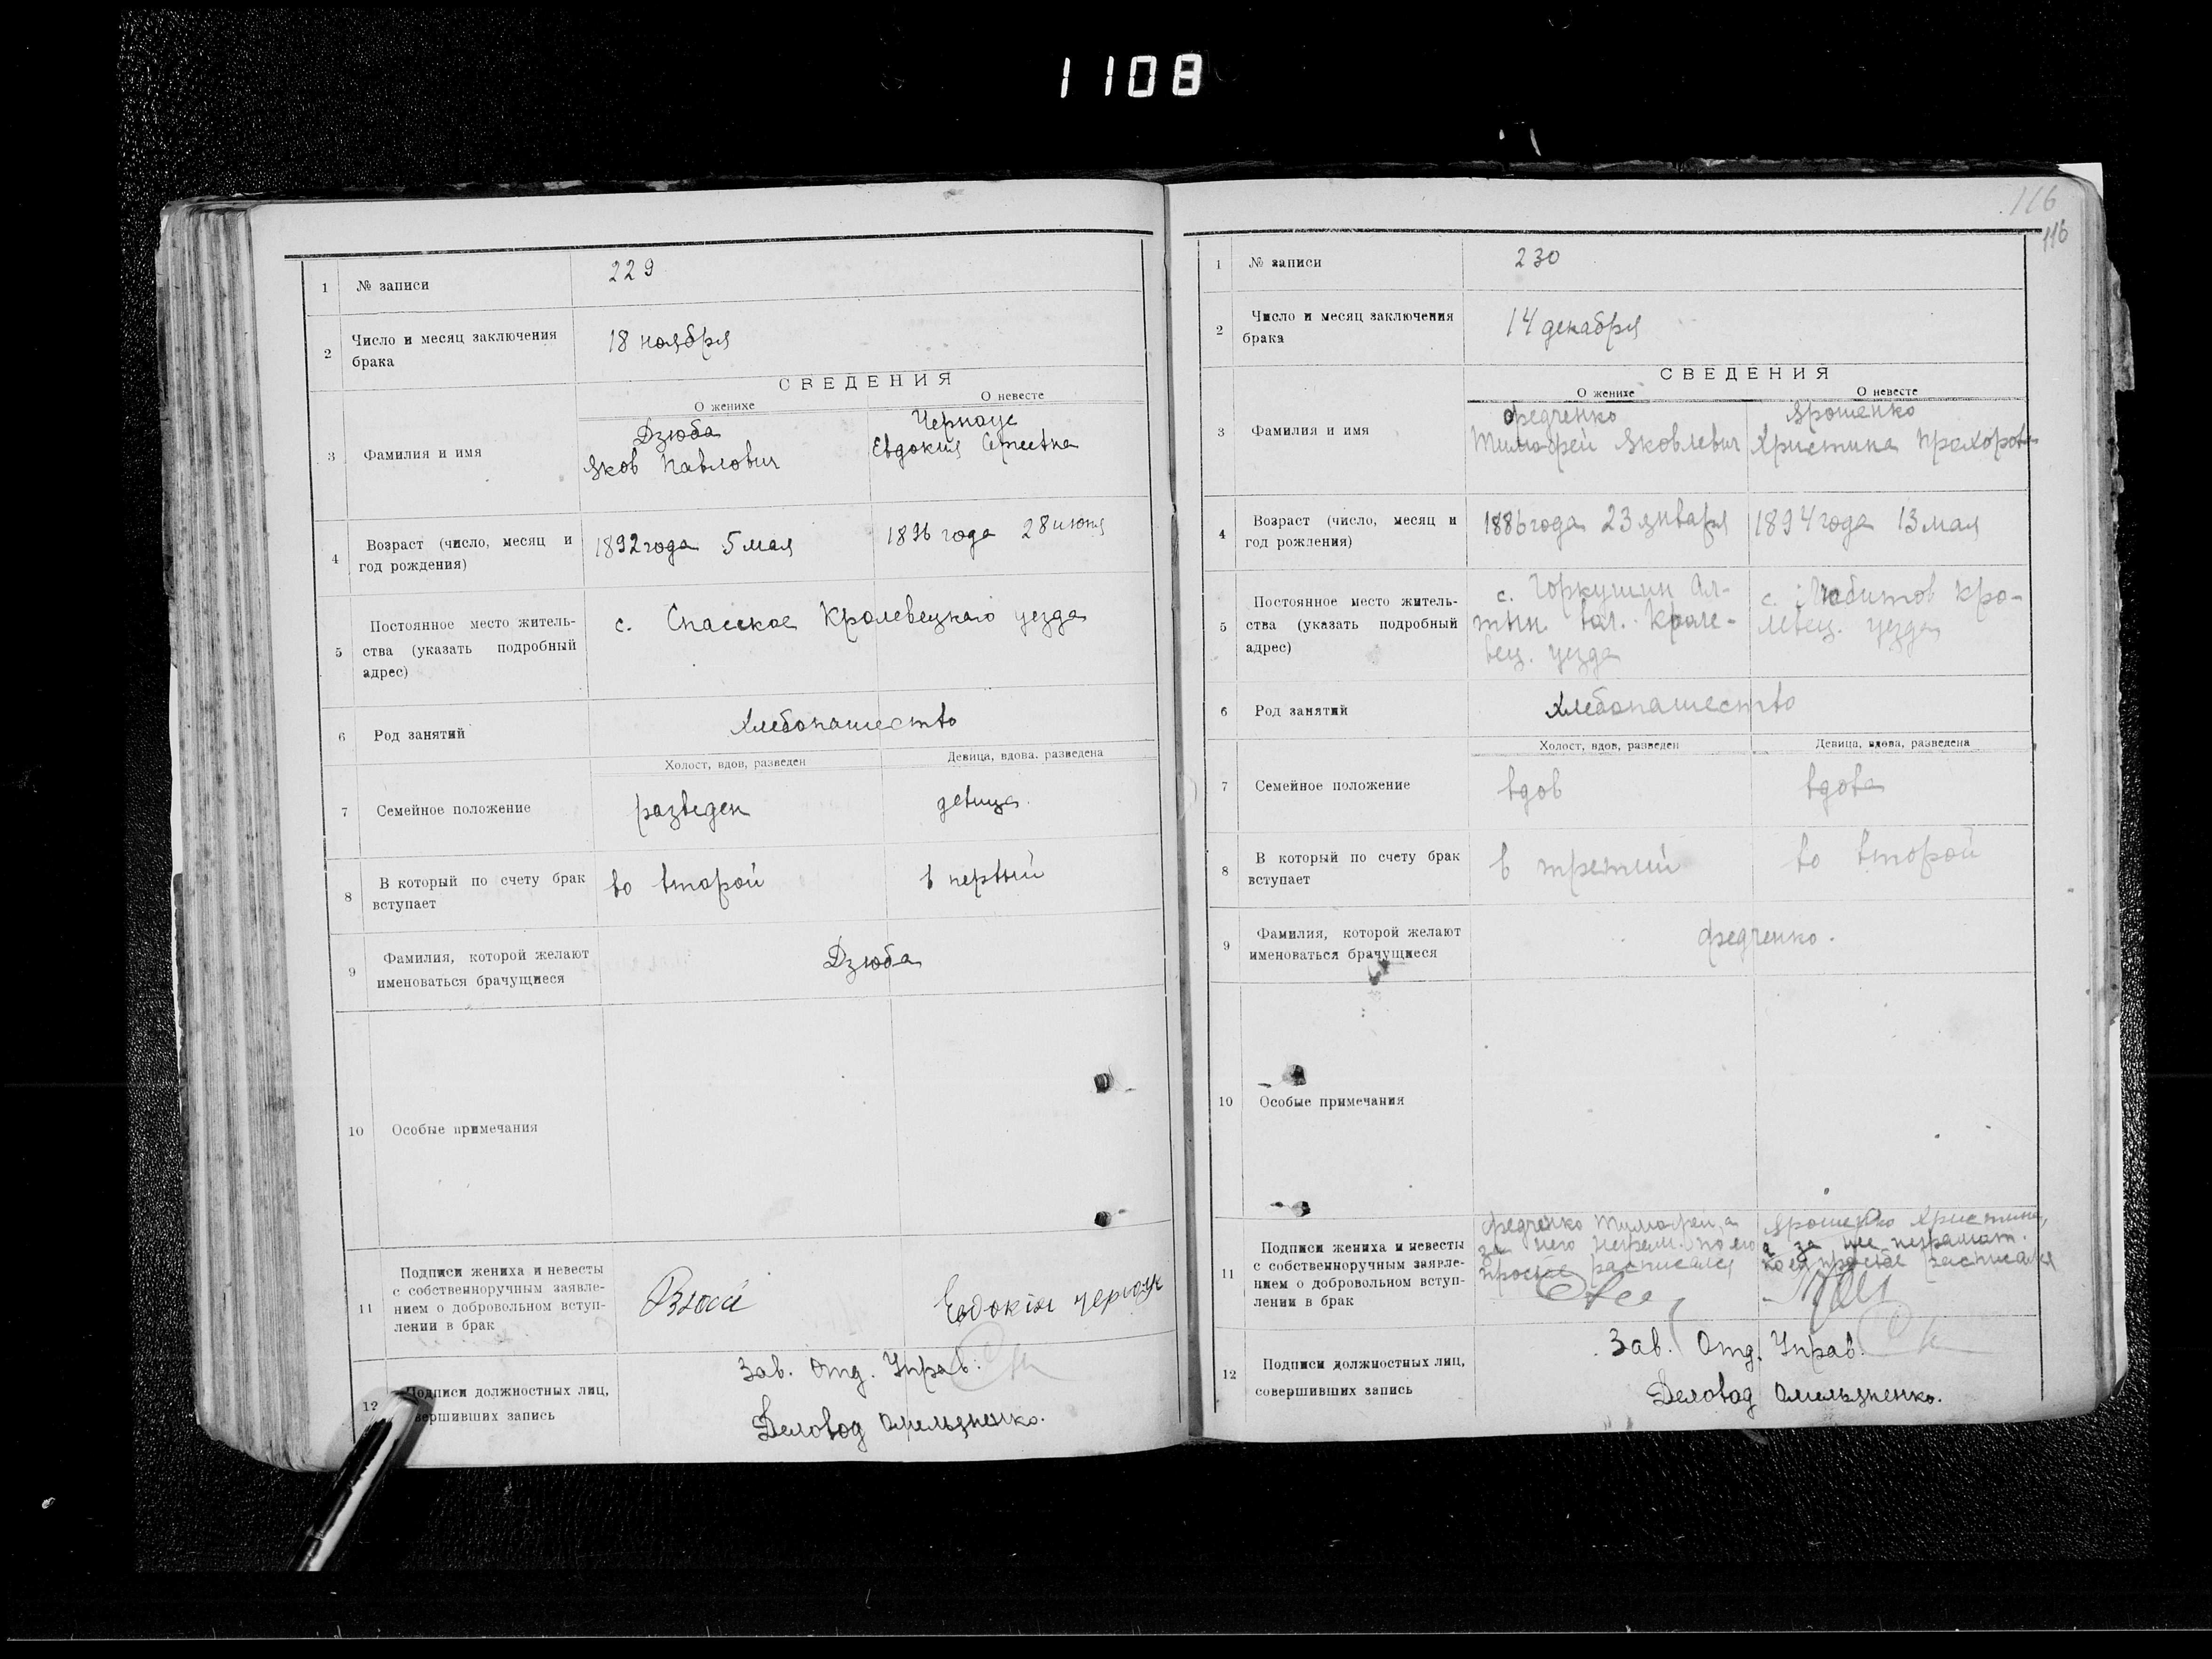 1108
1 № записи 229
2 Число и месяц заключения
брака
18 ноября
СВЕДЕНИЯ
О женихе О невесте
3 Фамилия и имя
Дзюба
Яков Павлович
Черноус
Евдокия
4 Возраст (число, месяц и
год рождения)
1892 года 5 мая
1896 года 28 июня
5 Постоянное место житель-
ства (указать подробный
адрес)
с. Спасское Кролевецкаго уезда
6 Род занятий хлебопашество
Холост, вдов, разведен Девица, вдова, разведена
7 Семейное положение разведен девица.
8 В который по счету брак
вступает
во второй в первый
9 Фамилия, которой желают
именоваться брачущиеся
Дзюба
10 Особые примечания
11 Подписи жениха и невесты
с собственноручным заявле-
нием о добровольном вступ-
лении в брак
Евдокія Черноус
12 Подписи должностных лиц,
вершивших запись
Зав. Отд. Управ.
Деловод Омельяненко.
116
116
1 № записи 230
2 Число и месяц заключения
брака
14 декабря
СВЕДЕНИЯ
О женихе О невесте
3 Фамилия и имя
Федченко
Тимофей Яковлевич
Ярошенко
Христина Прохоров
4 Возраст (число, месяц и
год рождения)
1886 года 23 января
1894 года 13 мая
5 Постоянное место житель-
ства (указать подробный
адрес)
с. Горкушин Ал-
тын. вол. Кроле-
вец. уезда
с. Любитов Кро-
левец. уезда
6 Род занятий хлебопашество
Холост, вдов, разведен Девица, вдова, разведена
7 Семейное положение вдов вдова
8 В который по счету брак
вступает
в третий во второй
9 Фамилия, которой желают
именоваться брачущиеся
Федченко.
10 Особые примечания
11 Подписи жениха и невесты
с собственноручным заявле-
нием о добровольном вступ-
лении в брак
Федченко Тимофей, а
за него неграм. по его
просьбе расписался
Ярошенко Христина,
а за нее неграмот.
по ея просьбе расписался
12 Подписи должностных лиц,
совершивших запись
Зав. Отд. Управ.
Деловод Омельяненко.